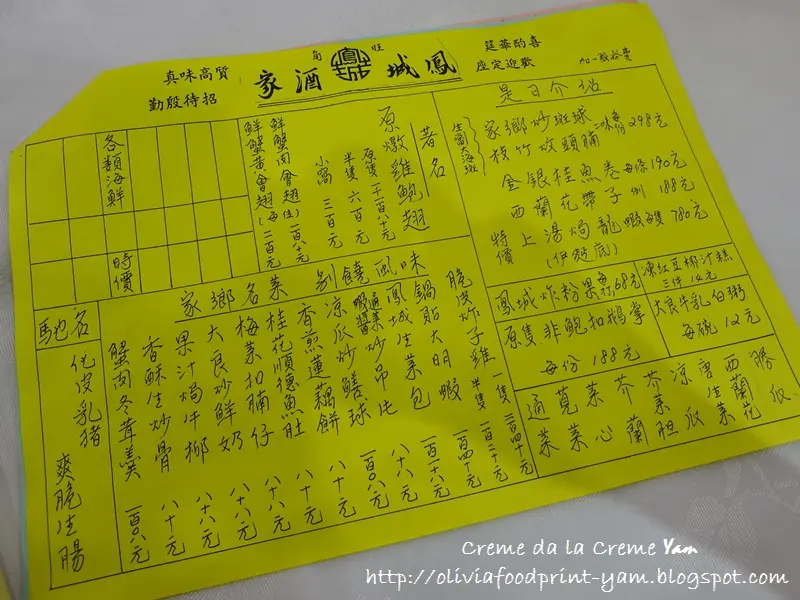 喜酌華筵
歡迎定座
旺角
鳳城酒家
質高味真
招待殷勤
是日介绍
家鄉炒斑球 每份298元
枝竹炆頭腩
金銀桂魚卷 每條190元
西蘭花帶子 例 188元
特價 上湯焗龍蝦每隻780元
(伊麵底)
鳳城炸粉果每打68元
凍紅豆椰汁糕
三件14元
原隻非鮑扣鵝掌
每份188元
大良牛乳白粥
每碗12元
勝瓜
西蘭花
唐生菜
凉瓜
芥菜胆
芥蘭
菜心
莧菜
通菜
著名
原燉雞鮑翅
原隻 一千一百八十元
半隻 六百元
小窩 三百元
鮮蟹肉會翅(每位)一百八十元
鮮蟹黃會翅(每位)二百元
各類海鮮 時價
別饒風味
家鄉名菜
脆皮炸子雞 一隻 二百四十元
半隻 一百二十元
鍋貼大明蝦 一百四十元
鳳城生菜包 一百一十八元
凉瓜炒鱔球 一百〇八元
香煎蓮藕餅 八十元
桂花順德魚肚 八十元
梅菜扣腩仔 八十元
大良炒鮮奶 八十八元
果汁焗牛柳 八十八元
香酥生炒骨 八十八元
蟹肉冬茸羹 一百〇八元
馳名
化皮乳猪
爽脆生腸
Creme da la Creme Yam
http://oliviafoodprint-yam.blogspot.com